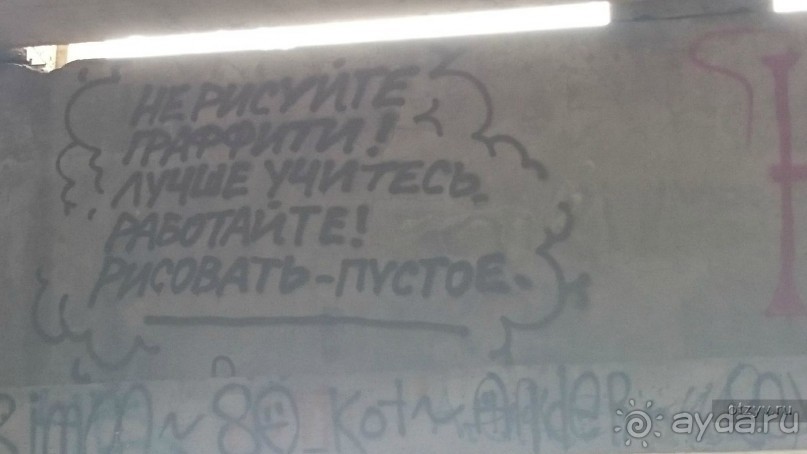 НЕ РИСУЙТЕ
ГРАФФИТИ!
ЛУЧШЕ УЧИТЕСЬ,
РАБОТАЙТЕ!
РИСОВАТЬ-ПУСТОЕ.
80 Kot~
otzyv.ru
ayda.ru